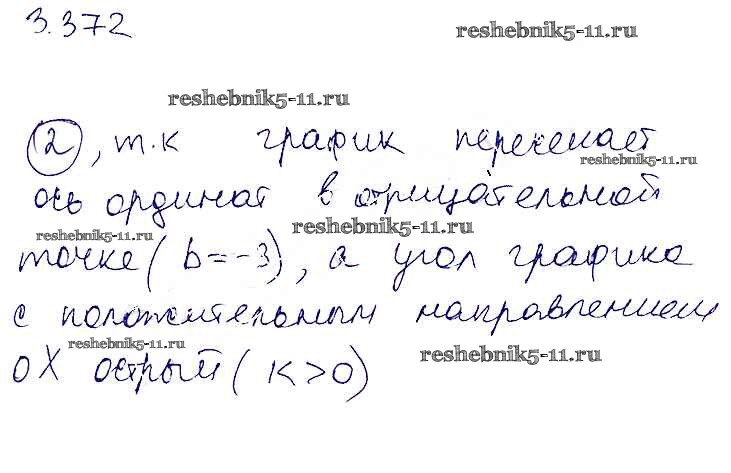 3.372
reshebnik5-11.ru
reshebnik5-11.ru
2, т.к график пересекает
reshebnik5-11.ru
ось ординат в отрицательной
reshebnik5-11.ru
reshebnik5-11.ru
точке (b=-3), а угол графика
с положительным направлением
reshebnik5-11.ru
reshebnik5-11.ru
OX острый (K>0)